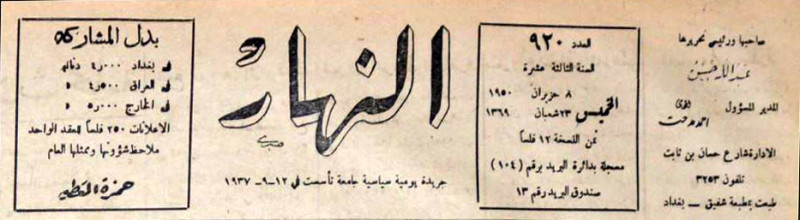 صاحبها ورئيس تحريرها
عبدالله حسن
المدير المسؤول
احمد مدحت
الادارة شارع حسان بن ثابت
تلفون ٣٢٥٣
طبعت بمطبعة شفيق - بغداد
العدد ٩٢٠
السنة الثالثة عشرة
الخميس
٨ حزيران ١٩٥٠
٢٣ شعبان ١٣٦٩
ثمن النسخة ١٢ فلساً
مسجلة بدائرة البريد برقم (١٠٤)
صندوق البريد رقم ١٣
النهار
صبري
جريدة يومية سياسية جامعة تأسست في ١٢-٦- ١٩٣٧
بدل المشاركة
في بغداد ٤٫٠٠٠ دنانير
في العراق ٤٫٥٠٠ »
في الخارج ٥٫٠٠٠ »
الاعلانات ٢٥٠ فلساً للعقد الواحد
ملاحظ شؤونها وممثلها العام
حمزة